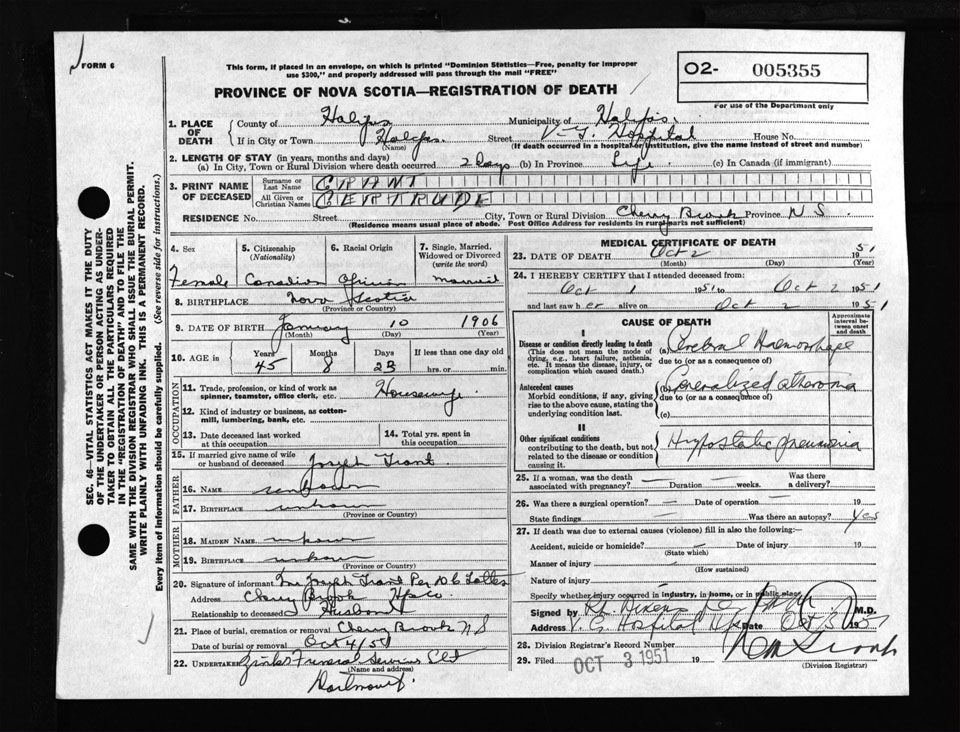 FORM 6
This form, if placed in an envelope, on which is printed "Dominion Statistics—Free, penalty for improper
use $300," and properly addressed will pass through the mail "FREE"
PROVINCE OF NOVA SCOTIA—REGISTRATION OF DEATH
O2- 005355
For use of the Department only
1. PLACE OF DEATH County of Halifax Municipality of Halifax
If in City or Town Halifax Street V-G. Hospital House No.
(Name) (If death occurred in a hospital or institution, give the name instead of street and number)
2. LENGTH OF STAY (in years, months and days)
(a) In City, Town or Rural Division where death occurred 2 Days (b) In Province Life (c) In Canada (if immigrant)
3. PRINT NAME OF DECEASED
Surname or Last Name GRANT
All Given or Christian Names GERTRUDE
RESIDENCE No. Street City, Town or Rural Division Cherry Brook Province N S.
(Residence means usual place of abode. Post Office Address for residents in rural parts not sufficient)
4. Sex 5. Citizenship (Nationality) 6. Racial Origin 7. Single, Married, Widowed or Divorced (write the word)
Female Canadian African married
8. BIRTHPLACE Nova Scotia
(Province or Country)
9. DATE OF BIRTH January 10 1906
(Month) (Day) (Year)
10. AGE in Years Months Days If less than one day old
45 8 23 hrs. or min.
OCCUPATION
11. Trade, profession, or kind of work as
spinner, teamster, office clerk, etc. Housewife
12. Kind of industry or business, as cotton-
mill, lumbering, bank, etc.
13. Date deceased last worked at this occupation 14. Total yrs. spent in this occupation
15. If married give name of wife
or husband of deceased Joseph Grant
FATHER
16. Name
17. BIRTHPLACE unknown
(Province or Country)
MOTHER
18. MAIDEN NAME
19. BIRTHPLACE unknown
(Province or Country)
20. Signature of informant Mr Joseph Grant Per
Address Cherry Brook Hfx Co.
Relationship to deceased Husband
21. Place of burial, cremation or removal Cherry Brook N S
Date of burial Oct 4/51
22. UNDERTAKER Zinks Funeral Service Ltd
(Name and address)
Dartmouth.
MEDICAL CERTIFICATE OF DEATH
23. DATE OF DEATH Oct 2 19 51
(Month) (Day) (Year)
24. I HEREBY CERTIFY that I attended deceased from:
Oct 1 1951 to Oct 2 1951
and last saw her alive on Oct 2 1951
CAUSE OF DEATH
Approximate interval between onset and death
I
Disease or condition directly leading to death (a) Cerebral Haemorrhage
(This does not mean the mode of dying, e.g., heart failure, asthenia, etc. It means the disease, injury, or complication which caused death.)
due to (or as a consequence of)
Antecedent causes (b) Generalized atheroma
Morbid conditions, if any, giving rise to the above cause, stating the underlying condition last.
due to (or as a consequence of)
(c)
II
Other significant conditions Hypostatic pneumonia
contributing to the death, but not related to the disease or condition causing it.
25. If a woman, was the death associated with pregnancy? — Duration weeks. Was there a delivery?
26. Was there a surgical operation? — Date of operation — 19
State findings Was there an autopsy? Yes
27. If death was due to external causes (violence) fill in also the following:—
Accident, suicide or homicide? Date of injury 19
(State which)
Manner of injury
(How sustained)
Nature of injury
Specify whether injury occurred in industry, in home, or in public place
Signed by M.D.
Address V. G. Hospital Date Oct 3 1951
28. Division Registrar's Record Number
29. Filed OCT 3 1951 19
(Division Registrar)
SEC. 46—VITAL STATISTICS ACT MAKES IT THE DUTY
OF THE UNDERTAKER OR PERSON ACTING AS UNDER-
TAKER TO OBTAIN ALL THE PARTICULARS REQUIRED
IN THE "REGISTRATION OF DEATH" AND TO FILE THE
SAME WITH THE DIVISION REGISTRAR WHO SHALL ISSUE THE BURIAL PERMIT.
WRITE PLAINLY WITH UNFADING INK. THIS IS A PERMANENT RECORD.
Every item of information should be carefully supplied. (See reverse side for instructions.)